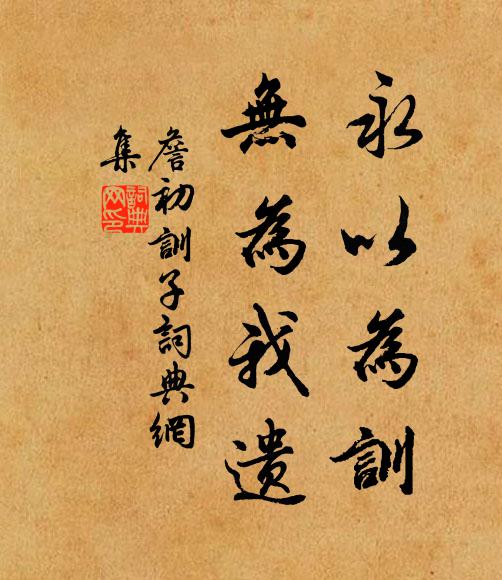 永以為訓
無為我遺
詹初訓子詞典網
集
詞典
網印